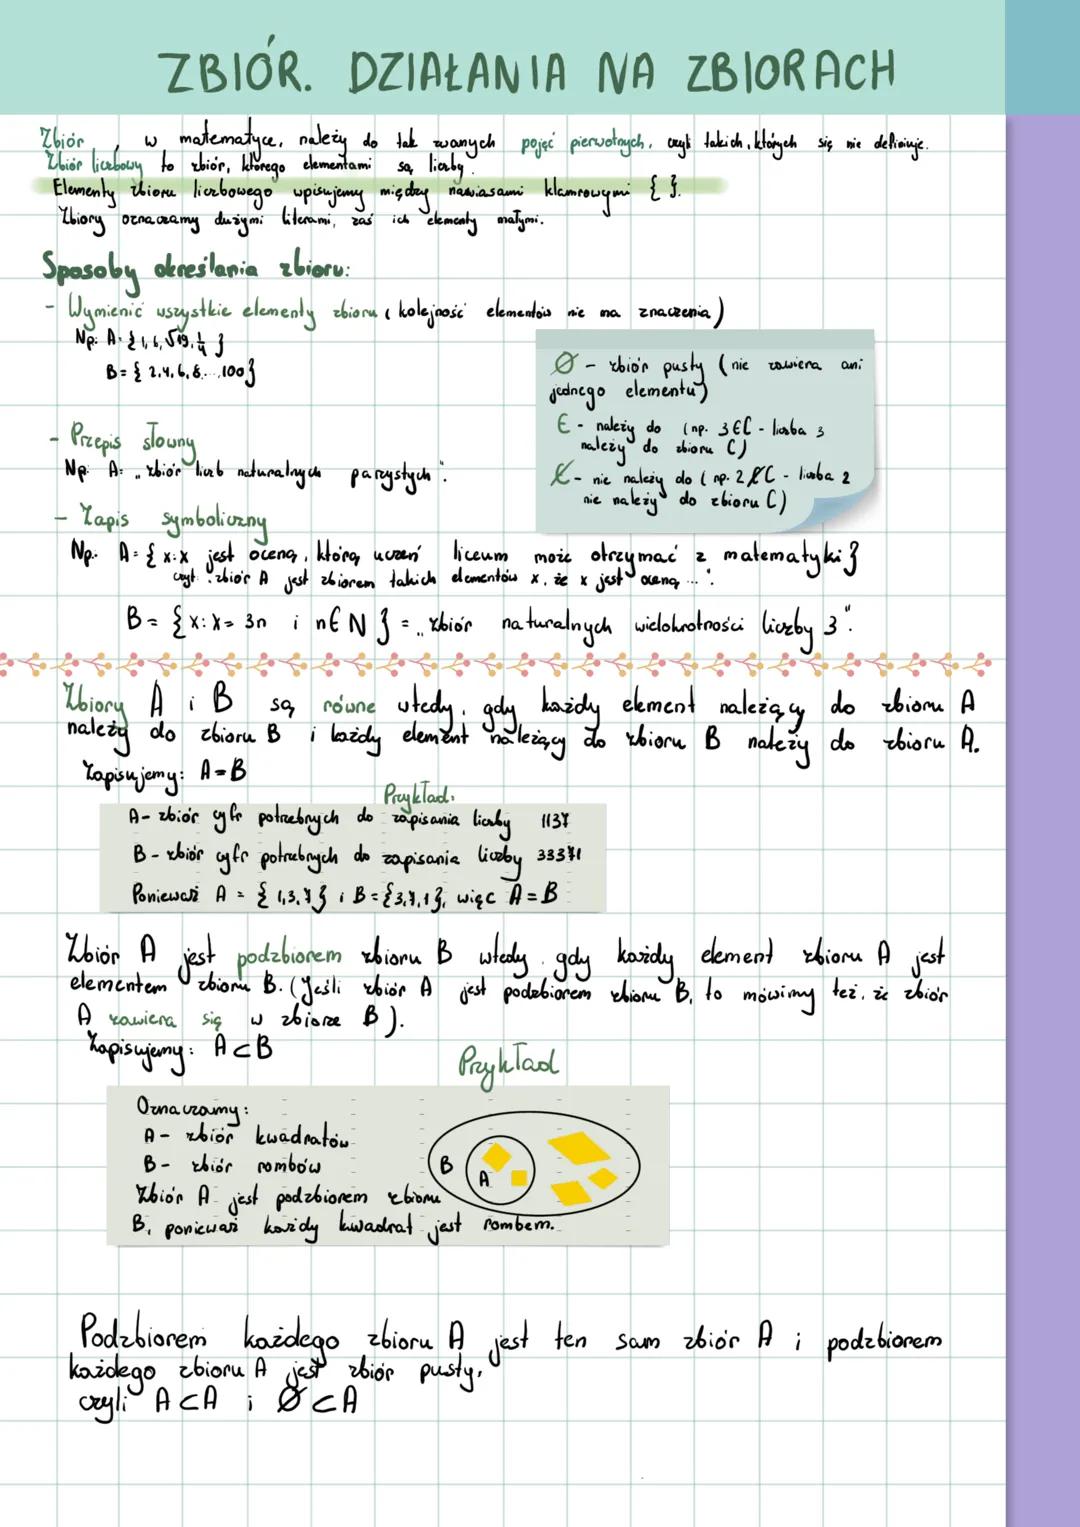 ZBIÓR. DZIAŁANIA NA ZBIORACH
Zbiór, w matematyce, należy do tak zwanych pojęć pierwotnych, czyli takich, których się nie definiuje.
Zbiór liczbowy to zbiór, którego elementami są liczby.
Elementy zbioru liczbowego wpisujemy między nawiasami klamrowymi { }.
Zbiory oznaczamy dużymi literami, zaś ich elementy małymi.
Sposoby określania zbioru:
- Wymienić wszystkie elementy zbioru (kolejność elementów nie ma znaczenia)
Np: A = {1, 6, √19, 1/4}
B = { 2, 4, 6, 8, ..., 100}
∅ - zbiór pusty (nie zawiera ani
jednego elementu)
∈ - należy do (np. 3 ∈ C - liczba 3
należy do zbioru C)
∉ - nie należy do (np. 2 ∉ C - liczba 2
nie należy do zbioru C)
- Przepis słowny
Np: A: „zbiór liczb naturalnych parzystych".
- Zapis symboliczny
Np. A = { x: x jest oceną, którą uczeń liceum może otrzymać z matematyki}
czyt. „zbiór A jest zbiorem takich elementów x, że x jest oceną ...".
B = {x: x = 3n i n ∈ N } = „zbiór naturalnych wielokrotności liczby 3".
Zbiory A i B są równe wtedy, gdy każdy element należący do zbioru A
należy do zbioru B i każdy element należący do zbioru B należy do zbioru A.
Zapisujemy: A = B
Przykład:
A - zbiór cyfr potrzebnych do zapisania liczby 1137
B - zbiór cyfr potrzebnych do zapisania liczby 33371
Ponieważ A = { 1,3,7} i B = {3,7,1}, więc A = B
Zbiór A jest podzbiorem zbioru B wtedy, gdy każdy element zbioru A jest
elementem zbioru B. (Jeśli zbiór A jest podzbiorem zbioru B, to mówimy też, że zbiór
A zawiera się w zbiorze B).
Zapisujemy: A ⊂ B
Przykład
Oznaczamy:
A - zbiór kwadratów
B - zbiór rombów
Zbiór A jest podzbiorem zbioru
B, ponieważ każdy kwadrat jest rombem.
B
A
Podzbiorem każdego zbioru A jest ten sam zbiór A i podzbiorem
każdego zbioru A jest zbiór pusty,
czyli A ⊂ A i ∅ ⊂ A